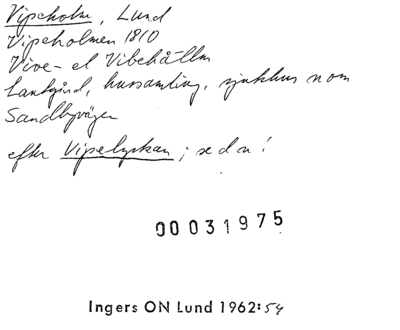 Vipeholm, Lund
Vipeholmen 1810
Vive- el Vibehålln
Lantgård, hussamling, sjukhus n om
Sandbyvägen
efter Vipelyckan; se d u!
00031975
Ingers ON Lund 1962:54